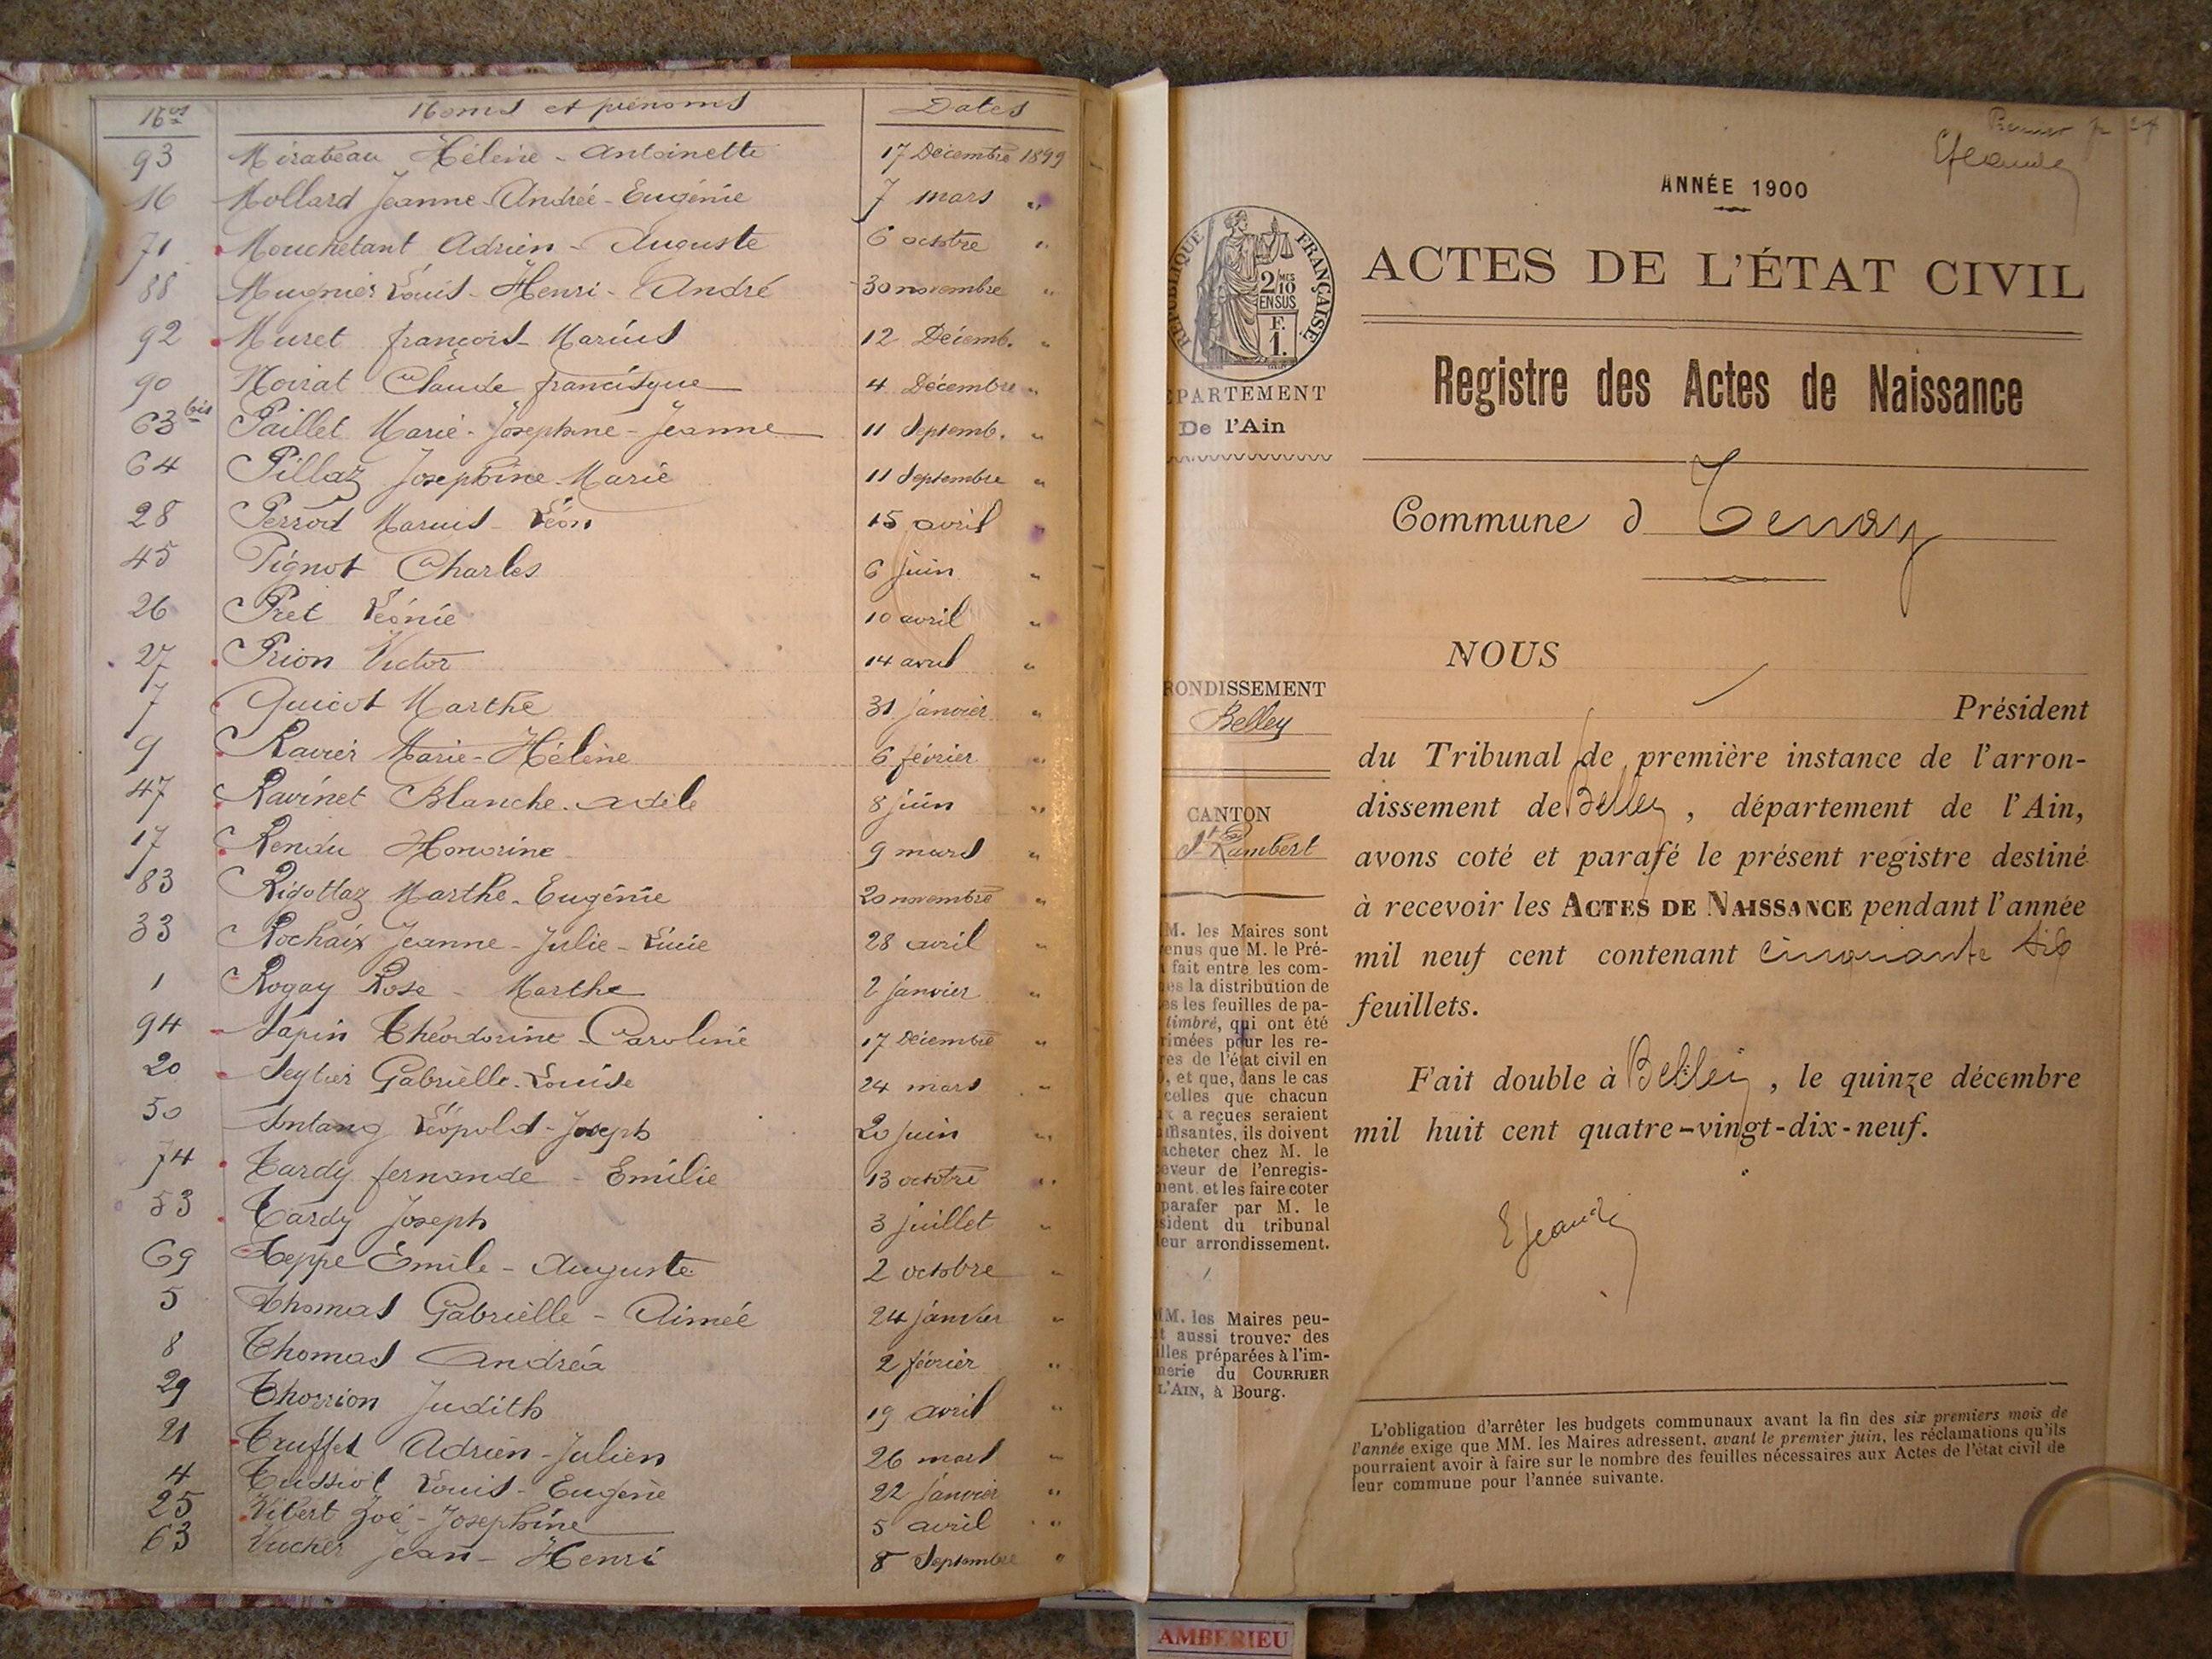 Nos Noms et prénoms Dates
93 Mirabeau Hélène - Antoinette 17 Décembre 1899
16 Mollard Jeanne - Andrée - Eugénie 7 mars "
71 Mouchetant Adrien - Auguste 6 octobre "
88 Mugnier Louis - Henri - André 30 novembre "
92 Muret françois - Marius 12 Décemb. "
90 Noirat Claude francisque 4 Décembre "
63 bis Paillet Marie - Joséphine - Jeanne 11 Septemb. "
64 Pillaz Joséphine - Marie 11 Septembre "
28 Perrod Marius - Léon 15 avril "
45 Pignot Charles 6 juin "
26 Pret Léonie 10 avril "
27 Prion Victor 14 avril "
7 Quicot Marthe 31 janvier "
9 Ravier Marie - Hélène 6 février "
47 Ravinet Blanche - Adèle 8 juin "
17 Rendu Honorine 9 mars "
83 Rigottaz Marthe - Eugénie 20 novembre "
33 Rochaix Jeanne - Julie - Lucie 28 avril "
1 Rogay Rose - Marthe 2 janvier "
94 Sapin Théodorine - Caroline 17 Décembre "
20 Gabrielle - Louise 24 mars "
50 Léopold - Joseph 20 juin "
74 Tardy fernande - Emilie 13 octobre "
53 Tardy Joseph 3 juillet "
69 Teppe Emile - Auguste 2 octobre "
5 Thomas Gabrielle - Aimée 24 janvier "
8 Thomas Andréa 2 février "
29 Thorrion Judith 19 avril "
21 Truffet Adrien - Julien 26 mars "
4 Tussiot Louis - Eugène 22 janvier "
25 Vibert Zoé - Joséphine 5 avril "
63 Vucher Jean - Henri 8 Septembre "
ANNÉE 1900
RÉPUBLIQUE FRANÇAISE
2/10 MES
EN SUS
F.
1.
ACTES DE L'ÉTAT CIVIL
Registre des Actes de Naissance
PARTEMENT
De l'Ain
Commune d Tenay
NOUS
Président
du Tribunal de première instance de l'arron-
dissement de Belley, département de l'Ain,
avons coté et parafé le présent registre destiné
à recevoir les ACTES DE NAISSANCE pendant l'année
mil neuf cent contenant cinquante six
feuillets.
Fait double à Belley, le quinze décembre
mil huit cent quatre-vingt-dix-neuf.
RONDISSEMENT
Belley
CANTON
St Rambert
M. les Maires sont
enus que M. le Pré-
fait entre les com-
es la distribution de
s les feuilles de pa-
timbré, qui ont été
rimées pour les re-
res de l'état civil en
, et que, dans le cas
celles que chacun
x a reçues seraient
ffisantes, ils doivent
acheter chez M. le
eveur de l'enregis-
ment et les faire coter
parafer par M. le
sident du tribunal
leur arrondissement.
MM. les Maires peu-
t aussi trouver des
illes préparées à l'im-
merie du COURRIER
L'AIN, à Bourg.
L'obligation d'arrêter les budgets communaux avant la fin des six premiers mois de
l'année exige que MM. les Maires adressent, avant le premier juin, les réclamations qu'ils
pourraient avoir à faire sur le nombre des feuilles nécessaires aux Actes de l'état civil de
leur commune pour l'année suivante.
AMBERIEU